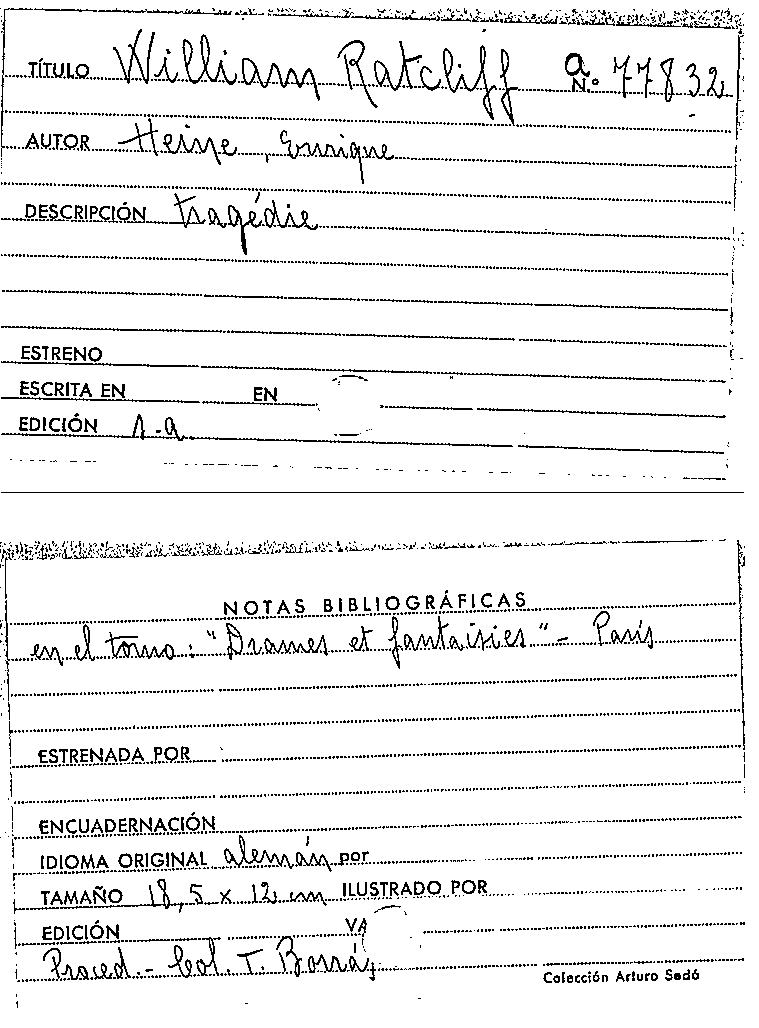 TÍTULO William Ratcliff a N.º 77832
AUTOR Heine, Enrique
DESCRIPCIÓN tragédie
ESTRENO
ESCRITA EN EN
EDICIÓN 1.a
NOTAS BIBLIOGRÁFICAS
en el tomo: "Drames et fantaisies" - París
ESTRENADA POR
ENCUADERNACIÓN
IDIOMA ORIGINAL alemán por
TAMAÑO 18,5 x 12 cm ILUSTRADO POR
EDICIÓN VA
Proced.- Col. T. Borrás
Colección Arturo Sedó